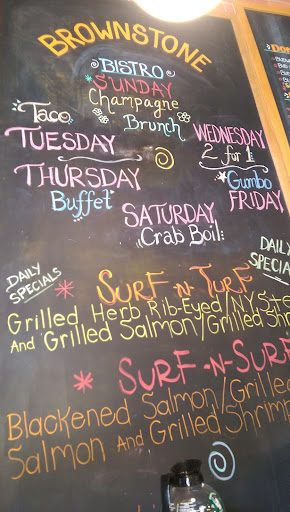 BROWNSTONE
BISTRO
SUNDAY
Champagne
Brunch
Taco
TUESDAY
WEDNESDAY
2 for 1
THURSDAY
Buffet
Gumbo
FRIDAY
SATURDAY
Crab Boil
DAILY
SPECIALS
DAILY
SURF-N-TURF
Grilled Herb Rib-Eyed/NY
And Grilled Salmon/Grilled
SURF-N-SURF
Blackened Salmon/Grilled
Salmon And Grilled Shrimp